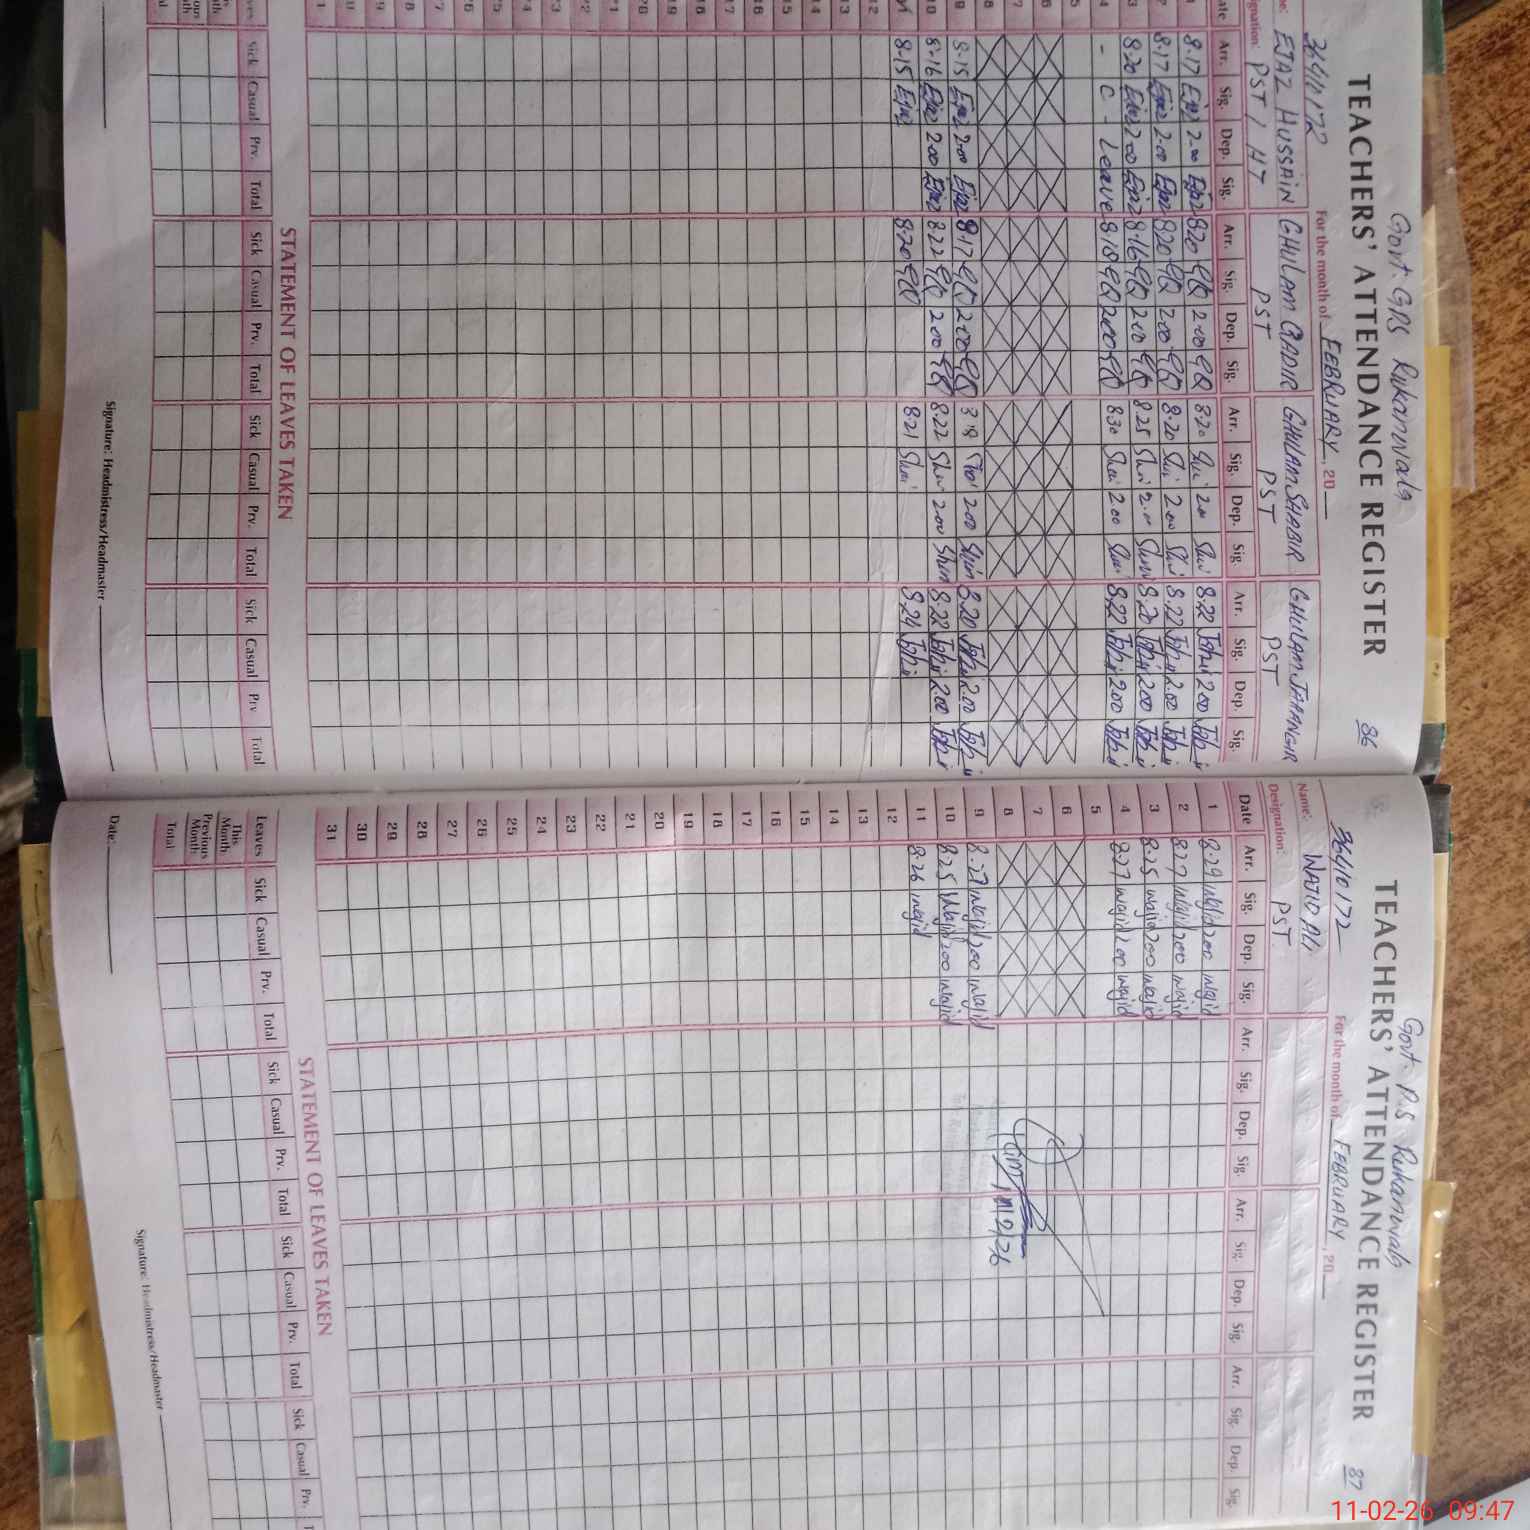 Govt. GPS Rukanwala
TEACHERS' ATTENDANCE REGISTER
86
36410172
For the month of FEBRUARY, 20
EJAZ HUSSAIN GHULAM QADIR GHULAM SHABIR GHULAM JAHANGIR
PST / HT PST PST PST
Arr. Sig. Dep. Sig. Arr. Sig. Dep. Sig. Arr. Sig. Dep. Sig Arr. Sig. Dep. Sig.
1 8.17 Ejaz 2.00 Ejaz 8.20 GQ 2.00 GQ 8.20 2.00 8.22 2.00
2 8.17 Ejaz 2.00 Ejaz 8.20 GQ 2.00 GQ 8.20 2.00 8.22 2.00
3 8.20 Ejaz 2.00 Ejaz 8.16 GQ 2.00 GQ 8.25 2.00 8.20 2.00
4 - C - Leave 8.18 GQ 2.00 GQ 8.30 2.00 8.22 2.00
5
6
7
8
9 8.15 Ejaz 2.00 Ejaz 8.17 GQ 2.00 GQ 2.00 8.20 2.00
10 8.16 Ejaz 2.00 Ejaz 8.22 GQ 2.00 GQ 8.22 2.00 8.22 2.00
8.15 Ejaz 8.20 GQ 8.21 8.24
12
13
14
15
16
17
18
19
20
STATEMENT OF LEAVES TAKEN
Sick Casual Prv. Total Sick Casual Prv. Total Sick Casual Prv. Total Sick Casual Prv Total
Signature: Headmistress/Headmaster
Govt. P.S Rukanwala
TEACHERS' ATTENDANCE REGISTER
87
36410172
For the month of FEBRUARY, 20
Name: WAJID ALI
Designation: PST
Date Arr. Sig. Dep. Sig. Arr. Sig. Dep. Sig. Arr. Sig. Dep. Sig. Arr. Sig. Dep. Sig.
1 8.29 Wajid 2.00 Wajid
2 8.27 Wajid 2.00 Wajid
3 8.25 Wajid 2.00 Wajid
4 8.27 Wajid 2.00 Wajid
5
6
7
8
9 8.27 Wajid 2.00 Wajid
10 8.25 Wajid 2.00 Wajid
11 8.26 Wajid
12
13
14
15
16
17
18
19
20
21
22
23
24
25
26
27
28
29
30
31
STATEMENT OF LEAVES TAKEN
Leaves Sick Casual Prv. Total Sick Casual Prv. Total Sick Casual Prv. Total Sick Casual Prv.
This Month
Previous Month
Total
Date: Signature: Headmistress/Headmaster
11-02-26 09:47